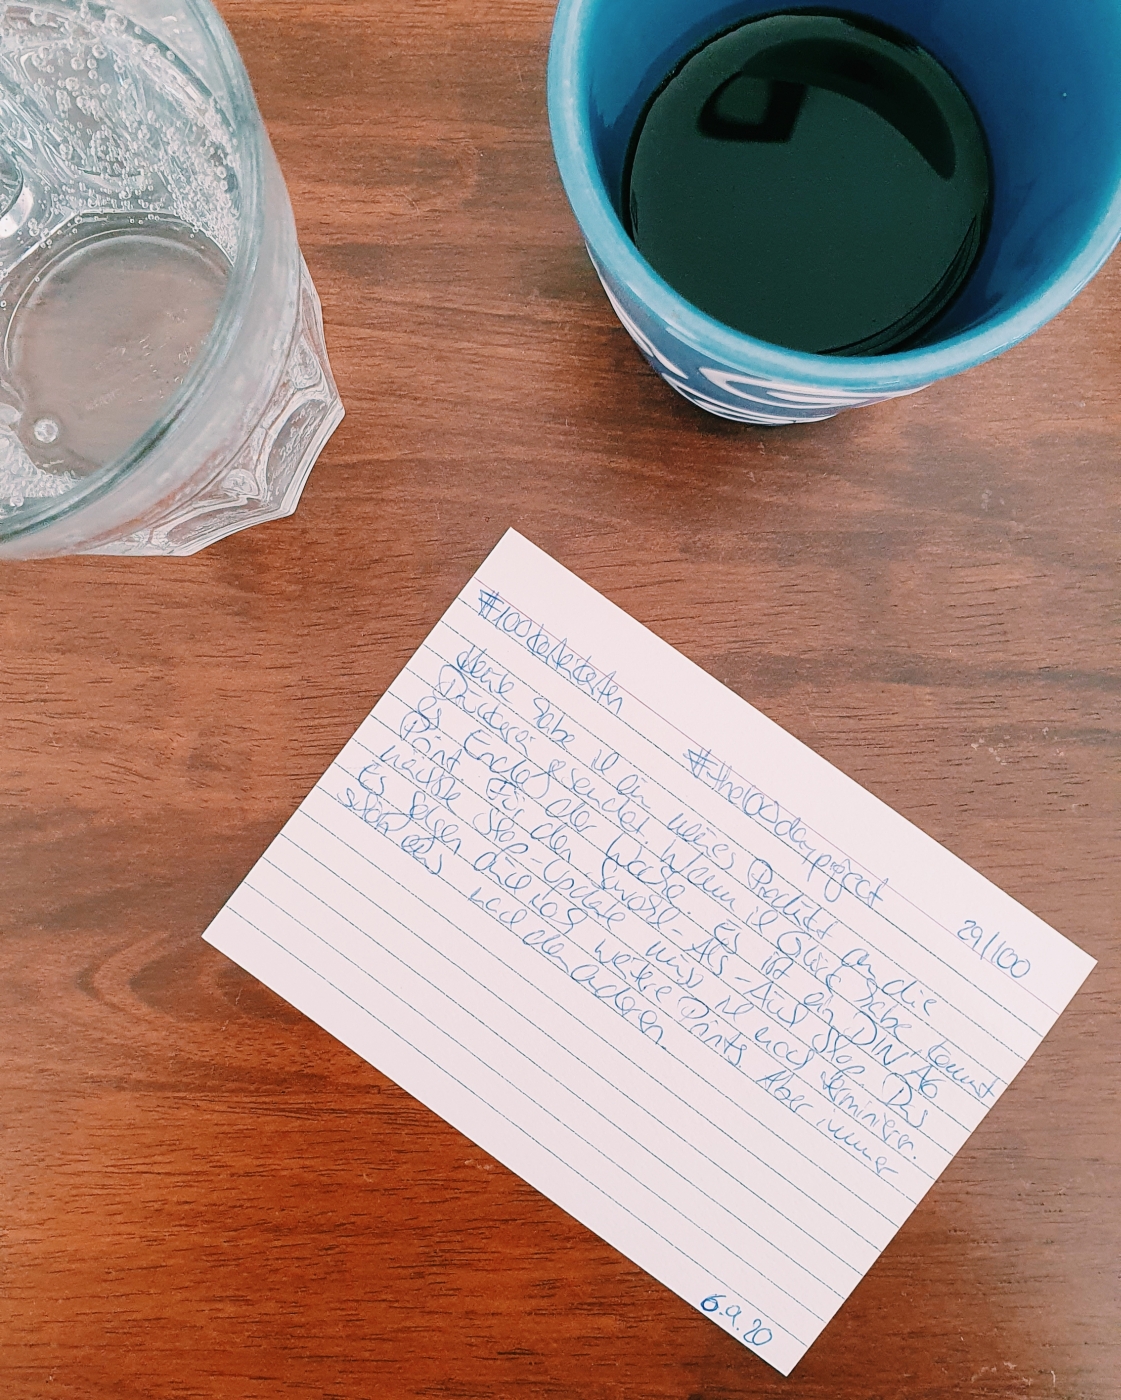 #100 #the100dayproject 29/100
Heute habe ich ein neues Produkt an die
Druckerei gesendet. Wenn ich Glück habe kommt
es Ende der Woche. Es ist ein DIN A6
Print für den Shop. Das
Shop-Update muss ich noch terminieren.
Es folgen weitere Prints. Aber immer
schön eins nach dem anderen
6.9.20